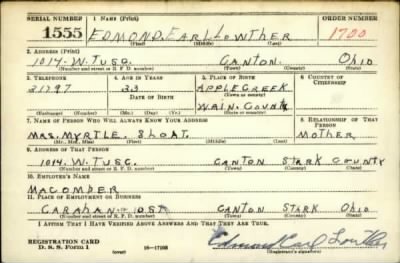 SERIAL NUMBER 1. NAME (Print) ORDER NUMBER
1555 EDMOND EARL LOWTHER 1700
(First) (Middle) (Last)
2. ADDRESS (Print)
1014 W. TUSC. CANTON OHIO
(Number and street or R. F. D. number) (Town) (County) (State)
3. TELEPHONE 4. AGE IN YEARS 5. PLACE OF BIRTH 6. COUNTRY OF CITIZENSHIP
21797 33 APPLECREEK
DATE OF BIRTH (Town or county)
WAIN. COUNTY
(Exchange) (Number) (Mo.) (Day) (Yr.) (State or country)
7. NAME OF PERSON WHO WILL ALWAYS KNOW YOUR ADDRESS 8. RELATIONSHIP OF THAT PERSON
MRS. MYRTLE. SLOAT. MOTHER
(Mr., Mrs., Miss) (First) (Middle) (Last)
9. ADDRESS OF THAT PERSON
1014. W. TUSC. CANTON STARK COUNTY
(Number and street or R. F. D. number) (Town) (County) (State)
10. EMPLOYER'S NAME
MACOMBER
11. PLACE OF EMPLOYMENT OR BUSINESS
CANTON STARK OHIO
(Number and street or R. F. D. number) (Town) (County) (State)
I AFFIRM THAT I HAVE VERIFIED ABOVE ANSWERS AND THAT THEY ARE TRUE.
REGISTRATION CARD
D. S. S. Form 1 (over) 16—17105 Edmond Earl Lowther
(Registrant's signature)